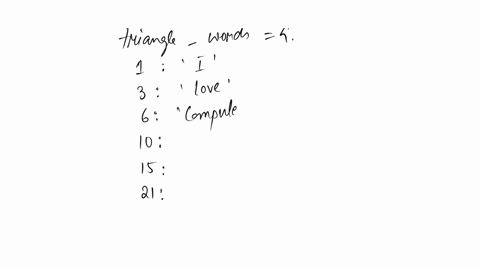 triangle_words = {
1 : 'I'
3 : 'love'
6 : 'Compute
10 :
15 :
21 :